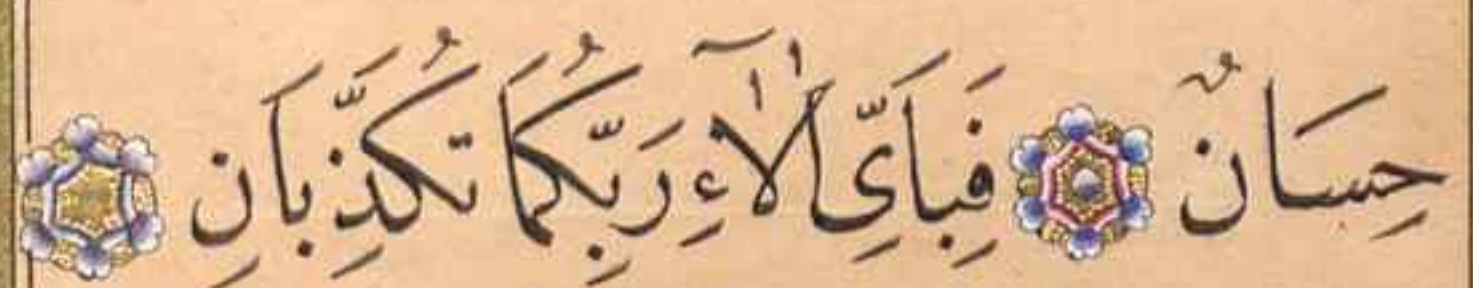 حِسَانٌ فَبِاَىِّ اٰلَٓاءِ رَبِّكُمَا تُكَذِّبَانِ